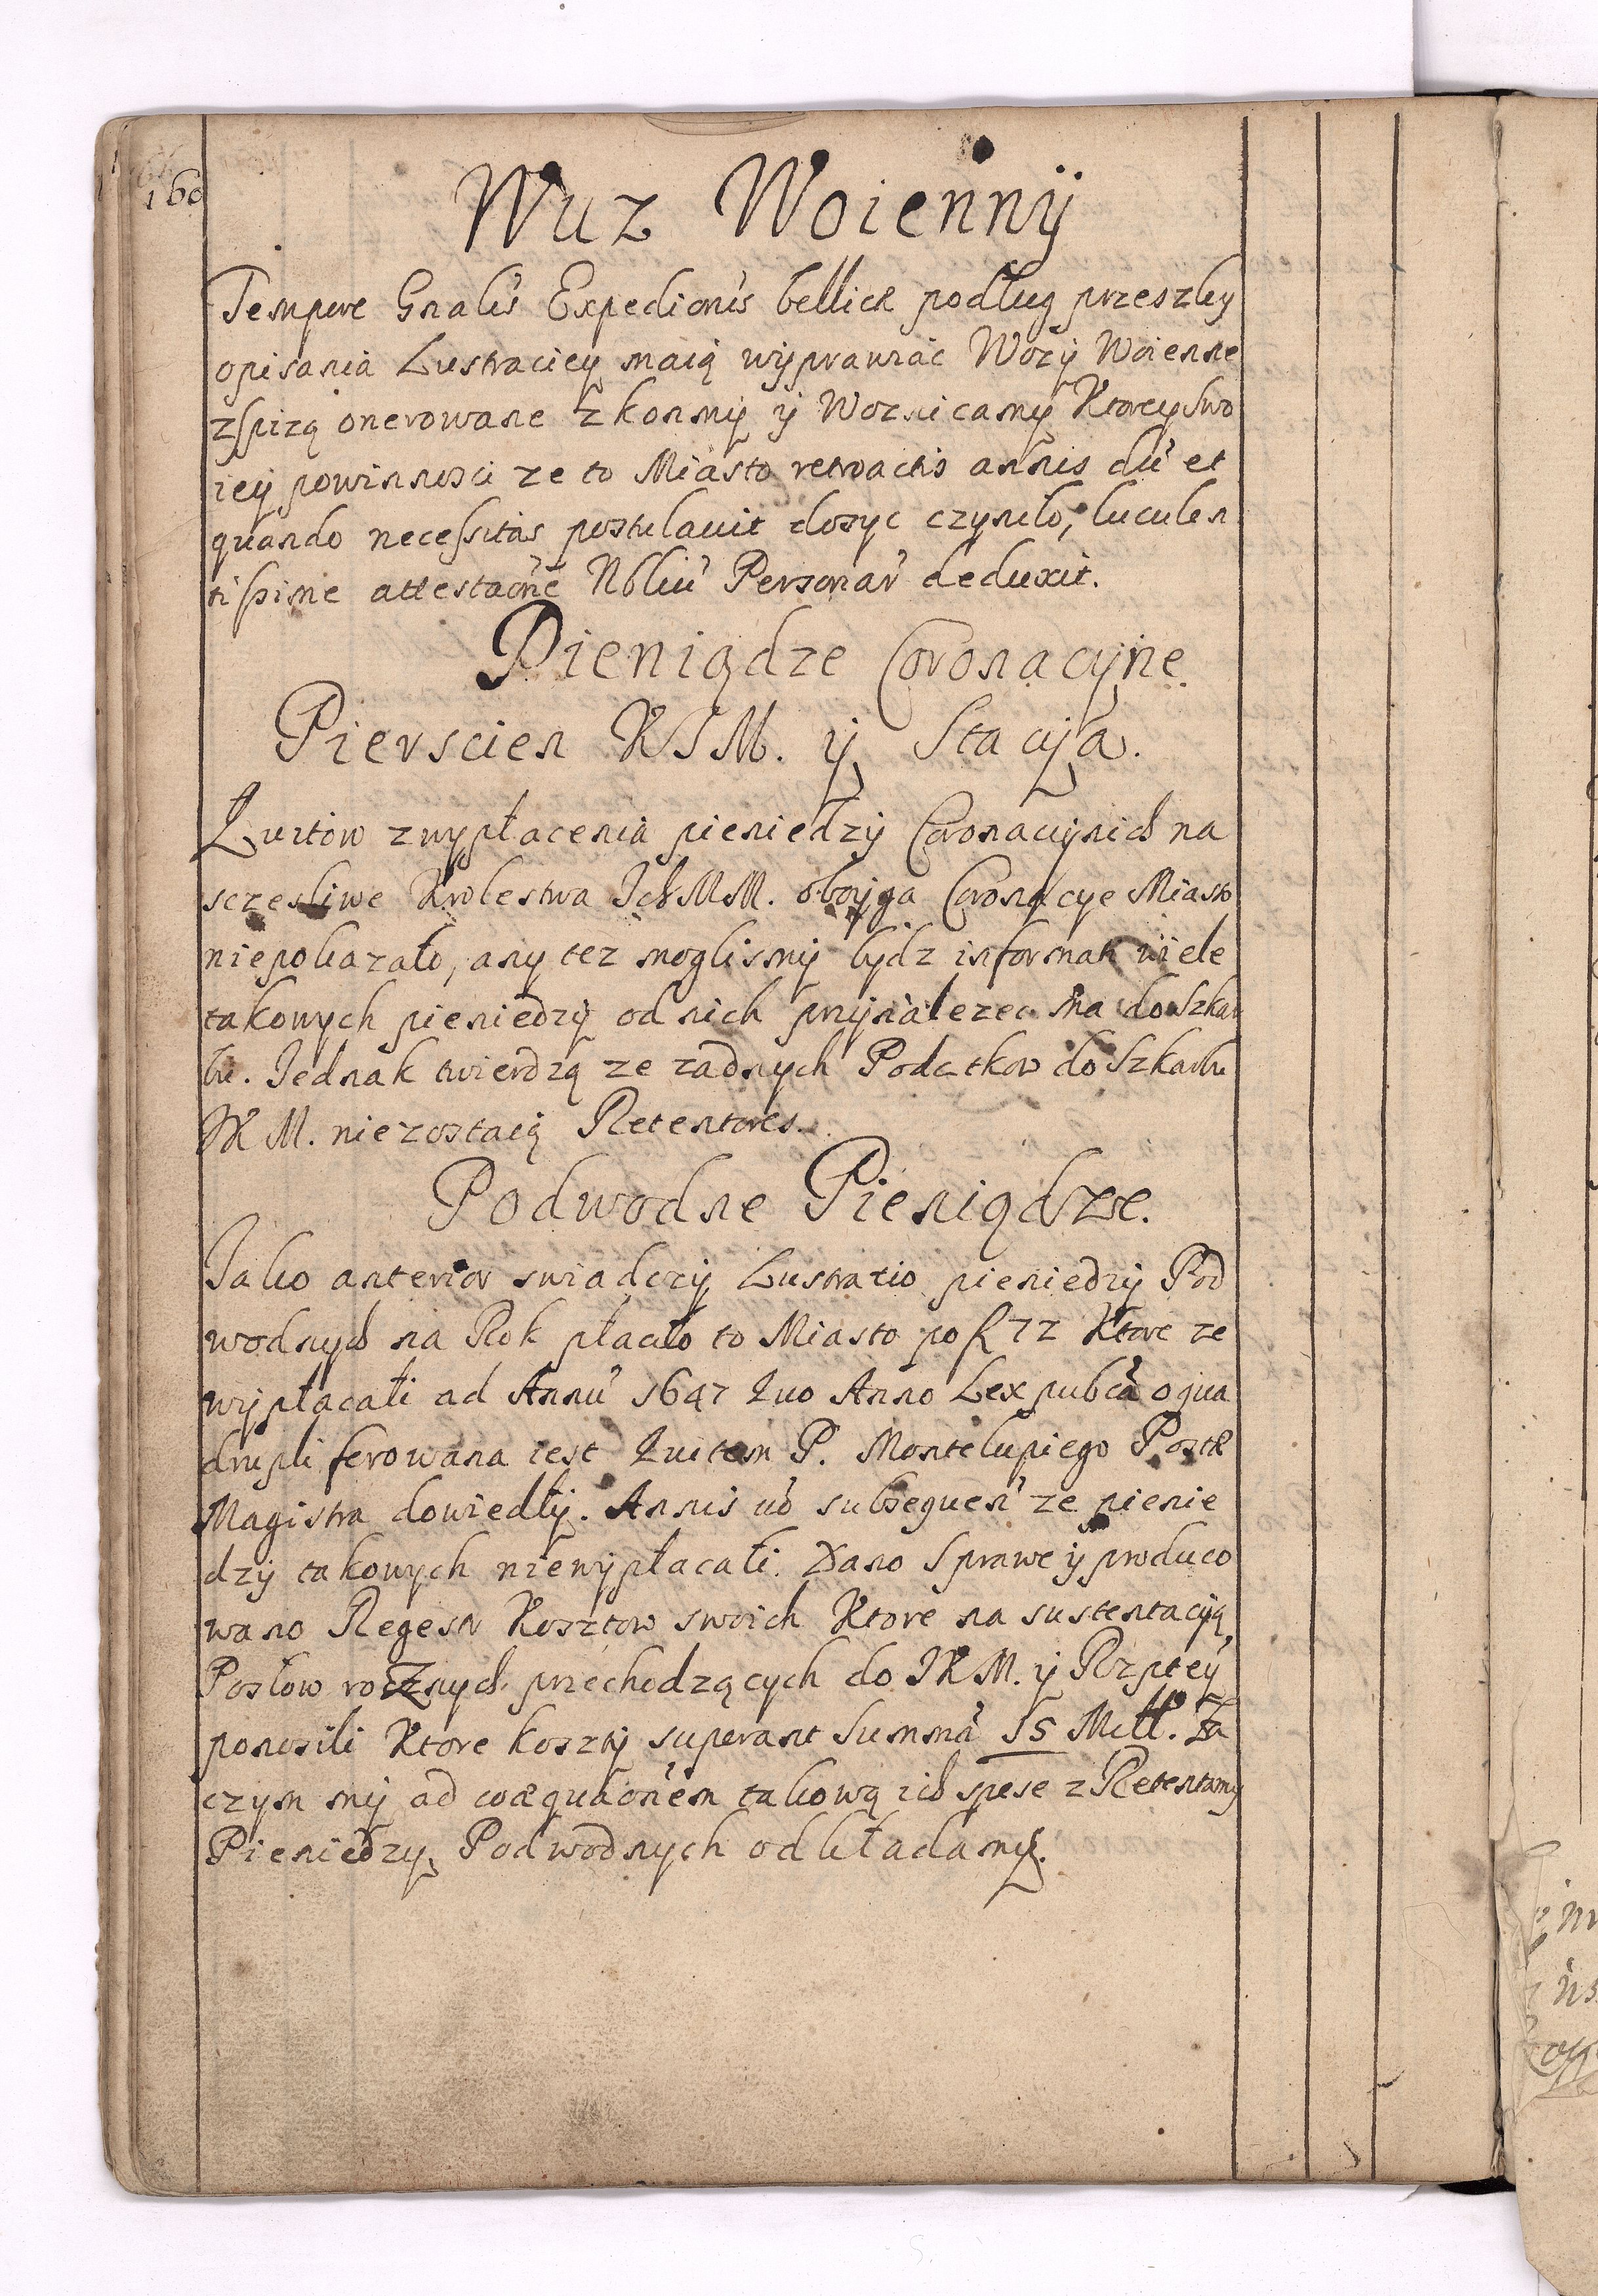 160
Wuz Woienny
Tempore Gnalis Expedionis bellicæ podług przeszłey
opisania Lustraciey maią wyprawiać Wozy Woienne
zspizą onerowane z konmy y Woznicamy Ktorey swo
iey powinnosci ze to Miasto retroactis annis dũ et
quando necessitas postulavit dosyc czyniło, luculen
tissime attestaõne Nbliũ Personar̃ deduxit.
Pieniądze Coronacyine
Pierscien KJM. y Stacyja.
Quitow z wypłacenia pieniedzy Coronacyinich na
sczesliwe Krolestwa Ich MM. oboyga Coronacye Miasto
niepokazało, any tez moglismy bydz informati wiele
takowych pieniedzy od nich przynalezec ma do Szkar
bu. Jednak twierdzą ze zadnych Podatkow do Szkarbu
JK M. niezostaią Retentores.
Podwodne Pieniądze.
Jako anterior swiadczy Lustratio pieniedzy Pod
wodnych na Rok płaciło to Miasto po f 72 Ktore ze
wypłacali ad Annũ 1647 Quo Anno Lex pubca o qua
drupli ferowana iest Quitem P. Montelupiego Postæ
Magistra dowiedły. Annis vo subsequeñ ze pienie
dzy takowych niewypłacali. Dano Sprawe y produco
wano Regestr Kosztow swoich Ktore na sustentacyą
Posłow roznych przechodzących do JKM. y Rzptey
ponosili Ktore koszty superant Summã 15 Mill. Za
czym my ad coæquaõnem takową ich spese z Retentamy
Pieniedzy Podwodnych odkładamy.